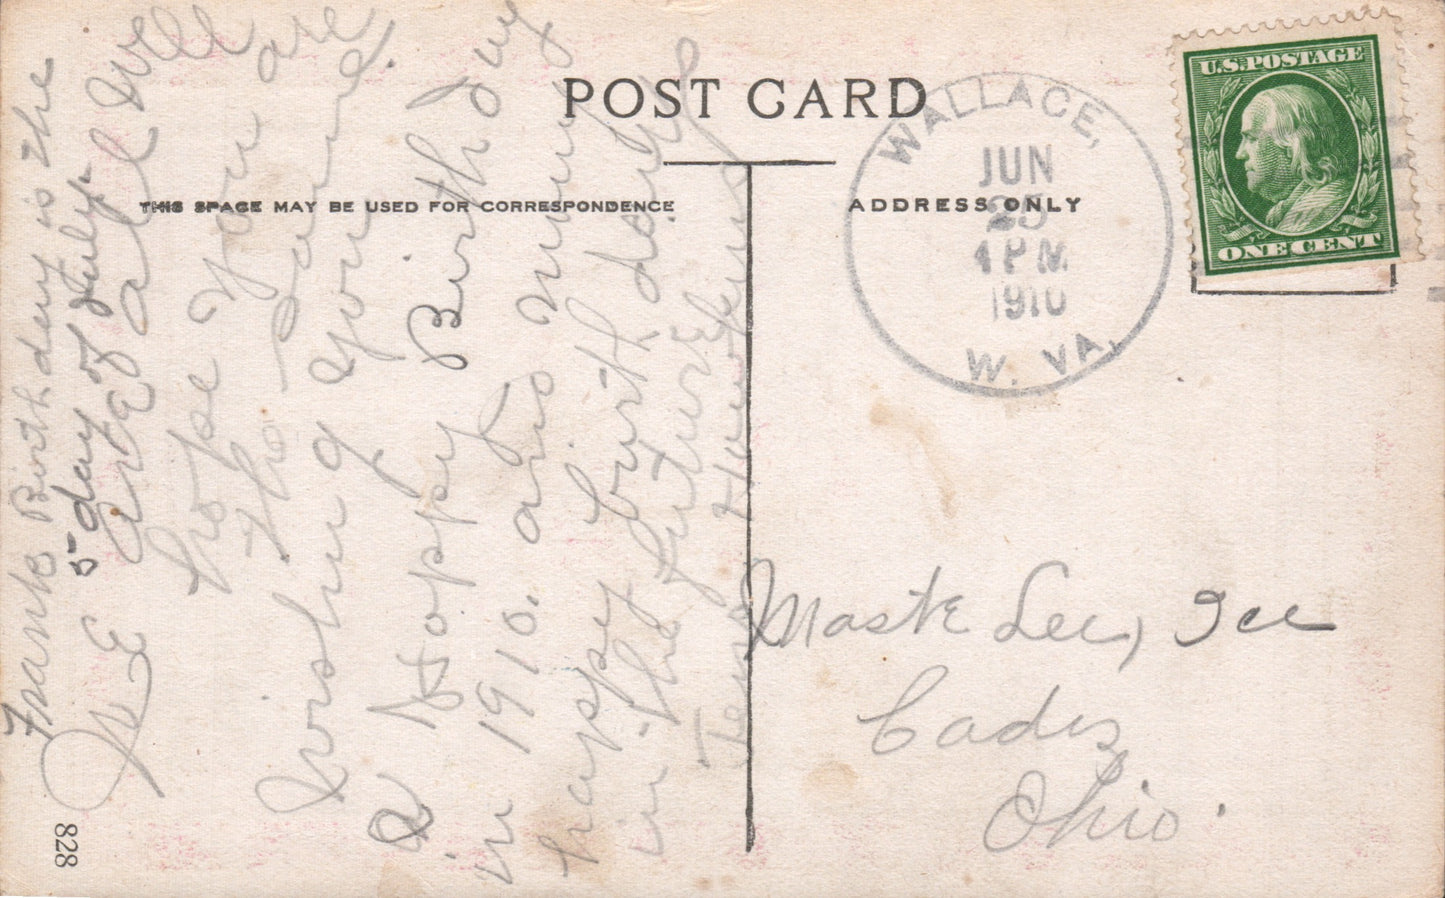 POST CARD
THIS SPACE MAY BE USED FOR CORRESPONDENCE
ADDRESS ONLY
WALLACE,
JUN
25
4 PM
1910
W. VA.
U.S. POSTAGE
ONE CENT
Franks Birth day is the
5 day of July.
WE arE all well
hope you are
the Same
wishing you
a Happy Birthday
in 1910. and many
happy birth days
in the futurE
Hawkins
Lee,
Cadis
Ohio.
828